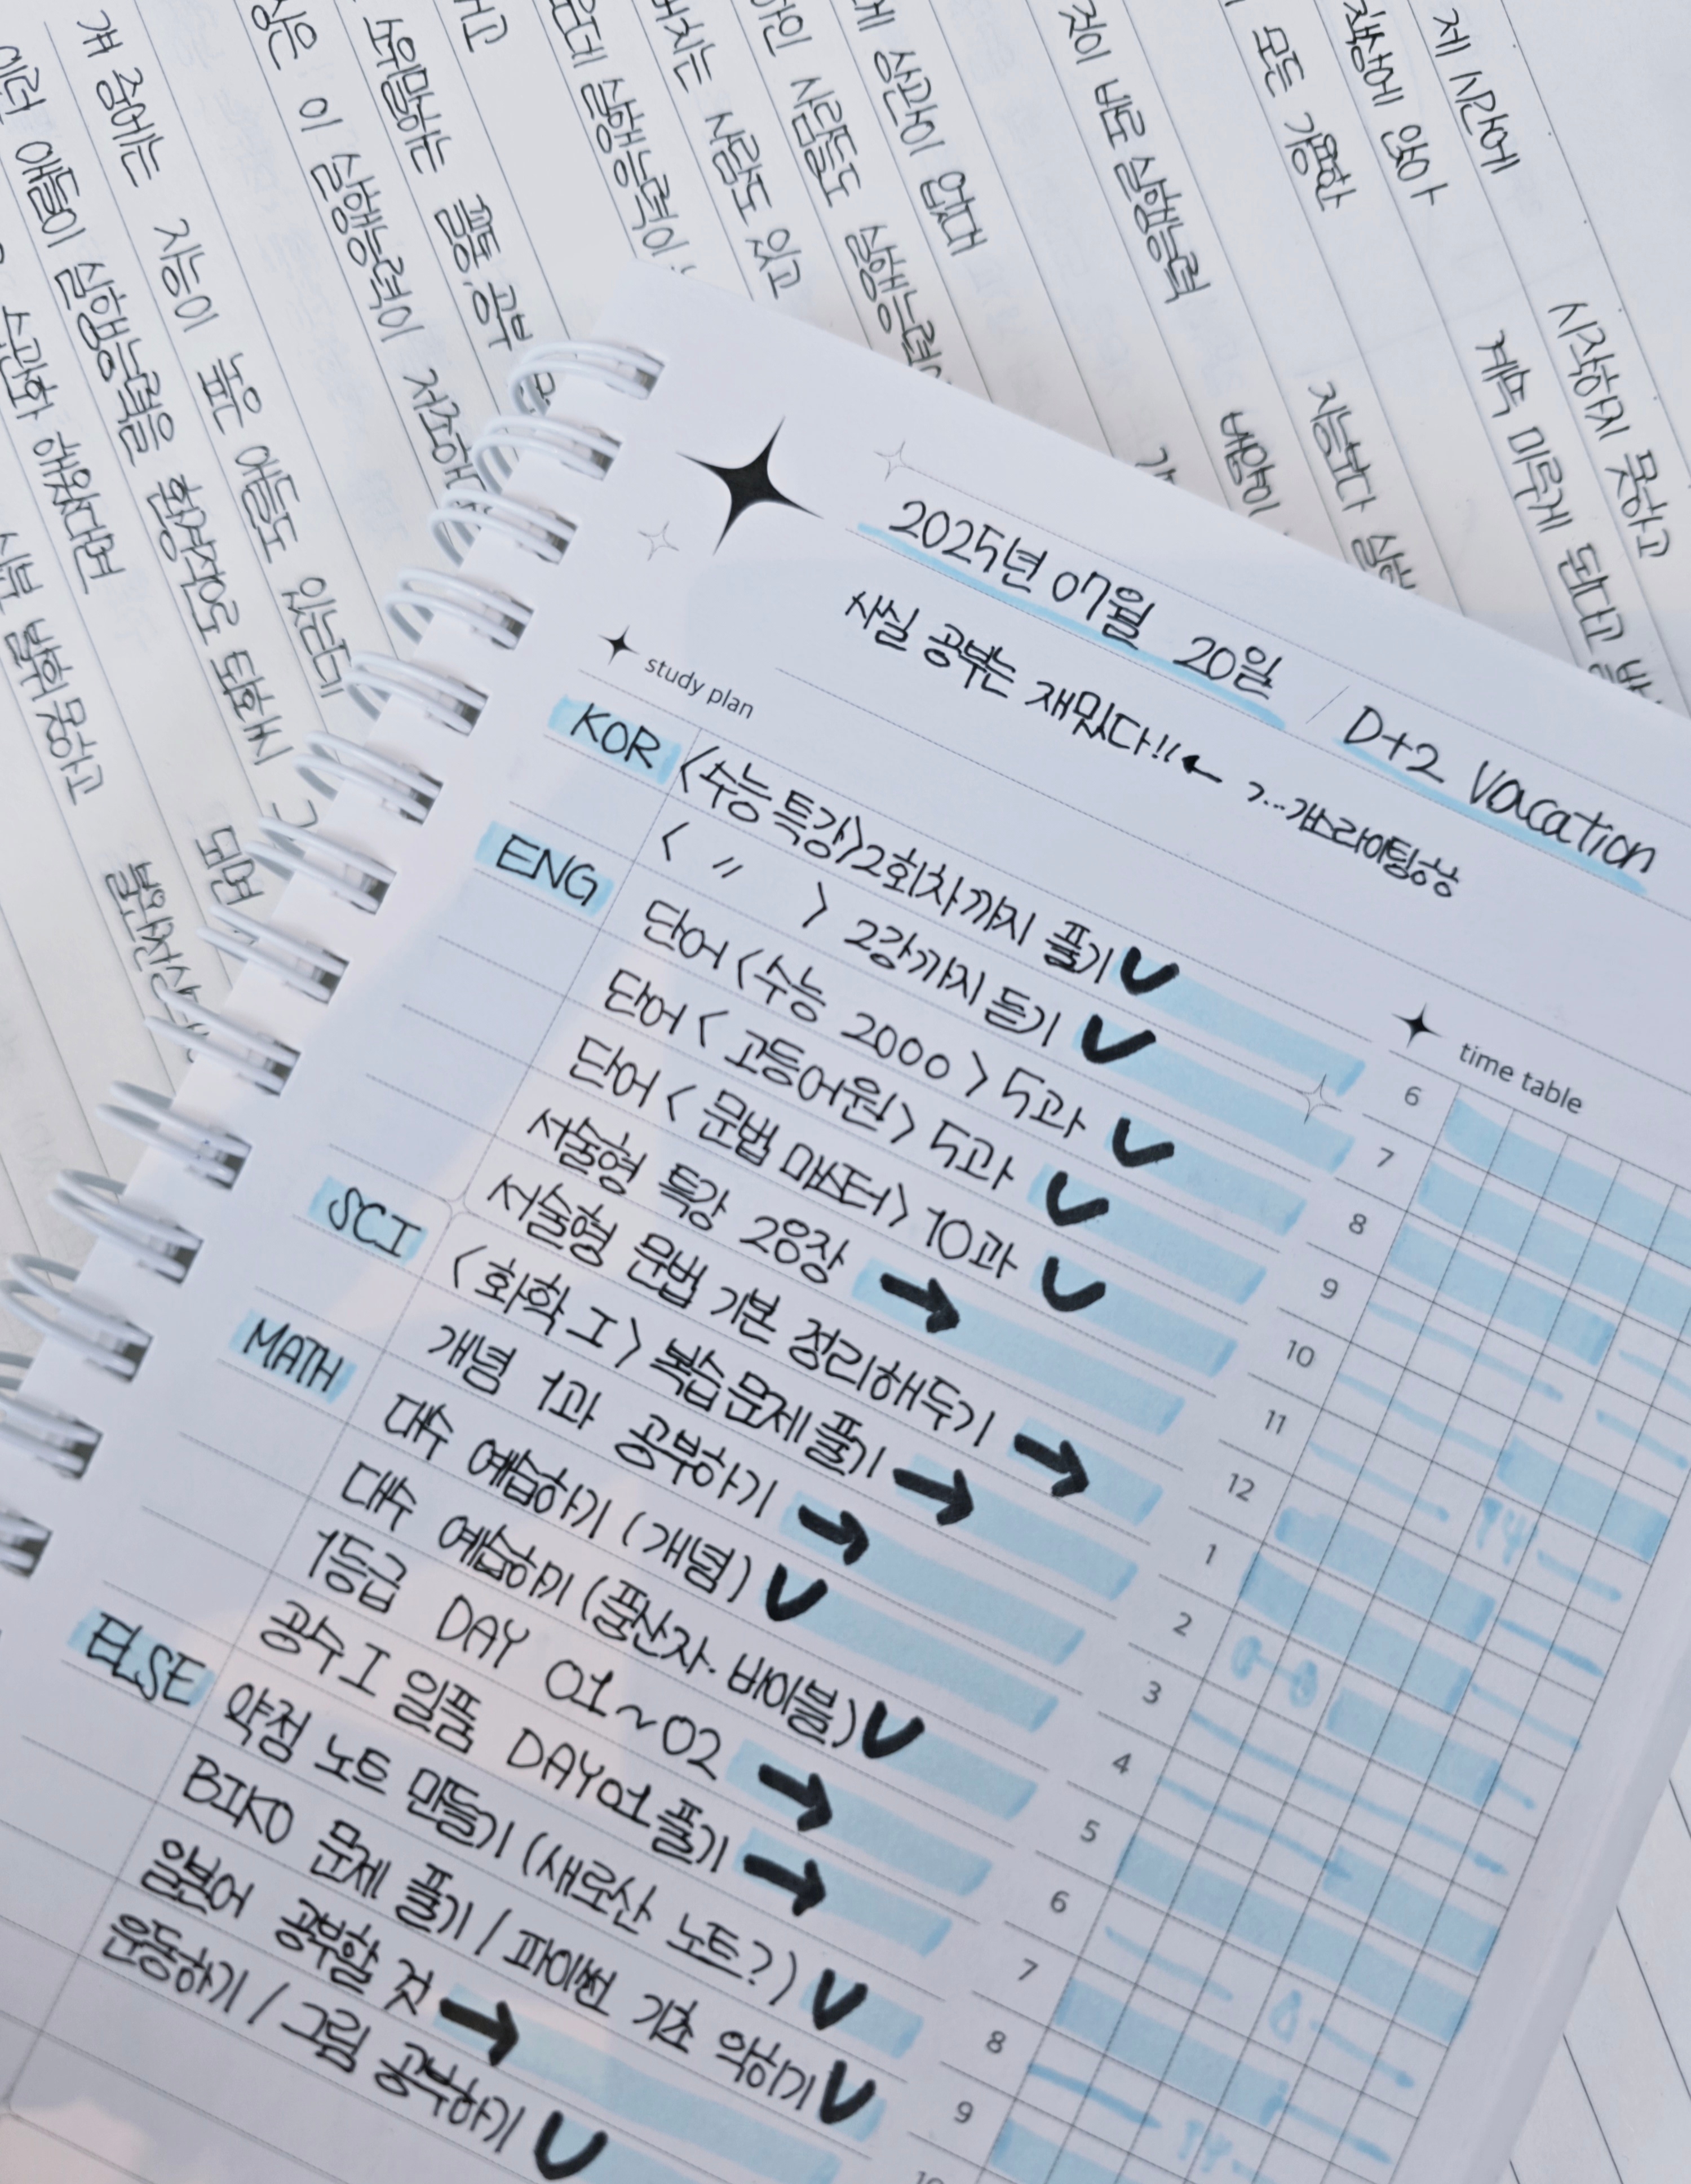 2025년 07월 20일 / D+2 Vacation
사실 공부는 재밌다!! ← ?...가스라이팅하삼
study plan
KOR <수능특강> 2회차까지 풀기
< 〃 > 2강까지 듣기
ENG 단어 <수능 2000> 5과
단어 <고등어원> 5과
단어 <문법 마스터> 10과
서술형 특강 28장 →
서술형 문법 기본 정리해두기 →
SCI <화학 I> 복습 문제 풀기 →
개념 1과 공부하기 →
MATH 대수 예습하기 (개념)
대수 예습하기 (풍산자. 바이블)
1등급 DAY 01~02 →
공수 I 일품 DAY01 풀기 →
ELSE 약점 노트 만들기 (새로산 노트?)
BIKO 문제 풀기 / 파이썬 기초 익히기
일본어 공부할 것 →
운동하기 / 그림 공부하기
time table
6
7
8
9
10
11
12
1
2
3
4
5
6
7
8
9
10
제 시간에
책상에 앉아
모든 가용한
것이 바로 실행능력
시작하지 못하고
계속 미루게 된다고
지능보다
배양이
상관이 없다
사람들도 실행능력
사람도 있고
실행능력이
소위말하는 깜둥.공부
이 실행능력이 저조해
걔 중에는 지능이 높은 애들도 있는데
이런 애들이 실행능력을 환경적으로 퇴화시
습관화 해왔다면
발휘못하고
모면
불완전